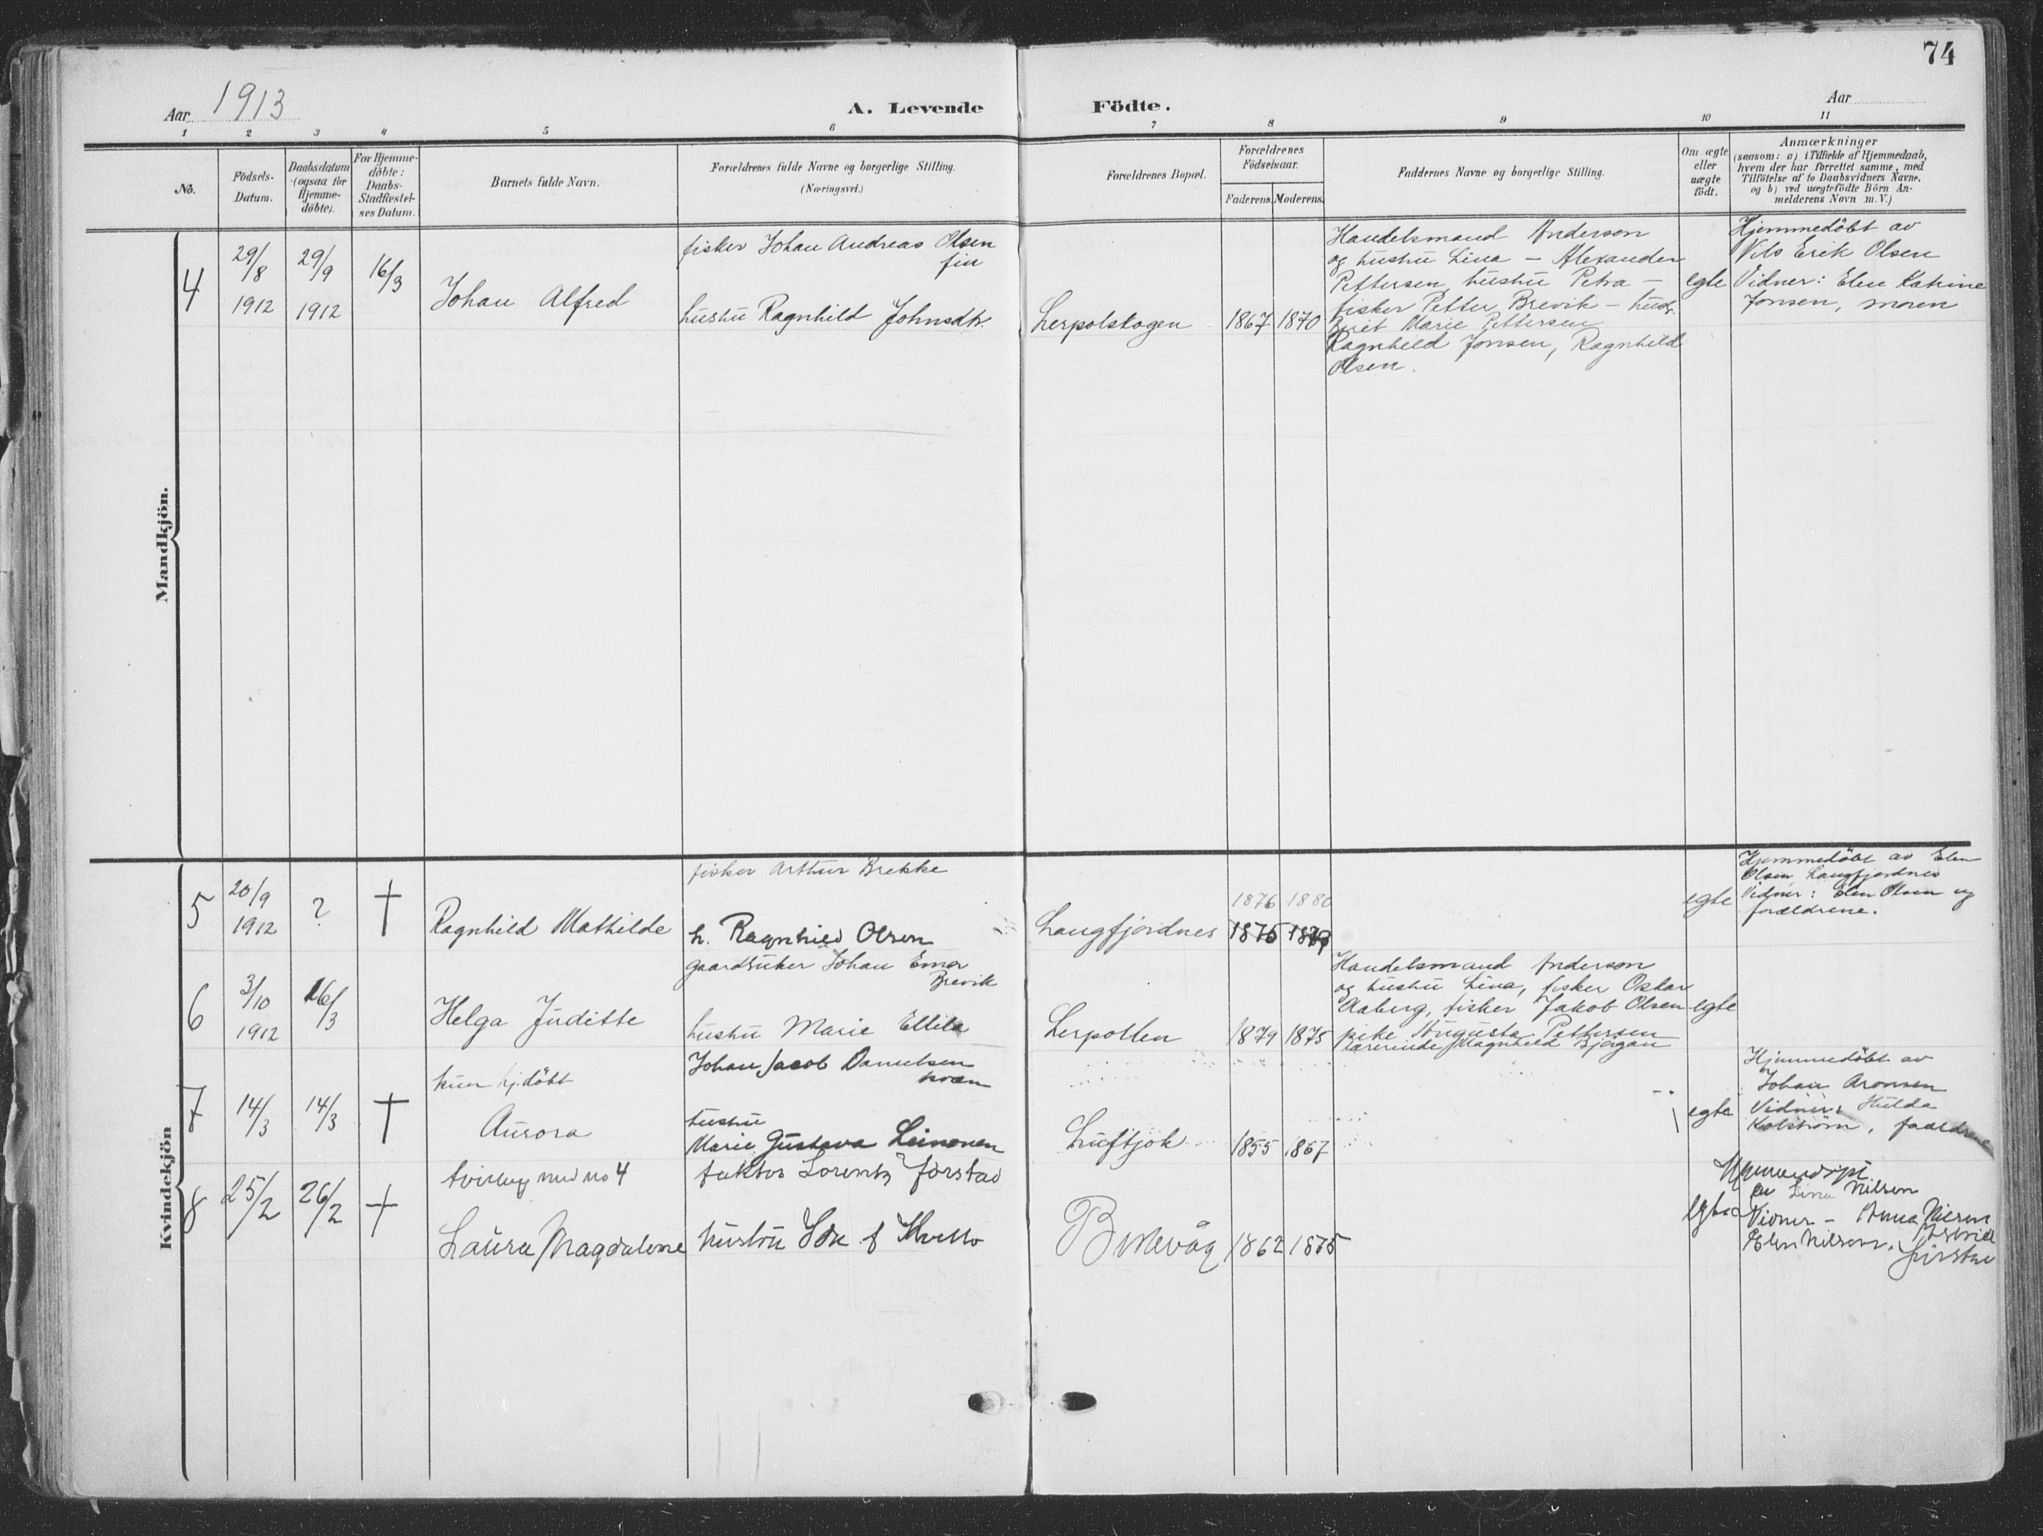 74
Aar 1913
A. Levende
Födte.
Aar
1 2 3 4 5 6 7 8 9 10 11
No.
Födsels-
Datum.
Daabsdatum
(ogsaa for
Hjemme-
döbte).
For Hjemme-
döbte:
Daabs-
Stadfæstel-
ses Datum.
Barnets fulde Navn.
Forældrenes fulde Navne og borgerlige Stilling.
(Næringsvei.)
Forældrenes Bopæl.
Forældrenes
Födselsaar.
Faderens. Moderens.
Faddernes Navne og borgerlige Stilling.
Om ægte
eller
uægte
födt.
Anmærkninger
(saasom: a) i Tilfælde af Hjemmedaab,
hvem der har forrettet samme, med
Tilföielse af to Daabsvidners Navne,
og b) ved uægtefödte Börn An-
melderens Navn m. V.)
Mandkjön.
4
29/8
1912
29/9
1912
16/3
Johan Alfred
fisker Johan Andreas Olsen
fin
hustru Ragnhild Johnsdtr.
Lerpolskogen
1867 1870
Handelsmand Anderson
og hustru Lina – Alexander
Pettersen, hustru Petra –
fisker Petter Brevik –
Berit Marie Pettersen
Ragnhild Jonsen, Ragnhild
Olsen.
egte
Hjemmedøbt av
Nils Erik Olsen
Vidner: Elen Katrine
Jonsen, moren
Kvindekjön
5
20/9
1912
?
†
Ragnhild Mathilde
fisker Arthur Brekke
h. Ragnhild Olsen
Langfjordnes
1876 1880
1875 1879
egte
Hjemmedøbt av Elen
Olsen Langfjordnes
Vidner: Elen Olsen og
forældrene.
6
3/10
1912
16/3
Helga Juditte
gaardbruker Johan Emer
Brevik
hustru Marie Ellila
Lerpollen
1879 1875
Handelsmand Anderson
og hustru Lina, fisker Oskar
Aaberg, fisker Jakob Olsen
pike Augusta Pettersen
lærerinde Magnhild Bjørgan
egte
7
14/3
14/3
†
kun hj.døbt
Aurora
Johan Jacob Danielsen
kvæn
hustru
Marie Gustava Leinonen
Luftjok
1855 1867
egte
Hjemmedøbt av
Johan Aronsen
Vidner: Hulda
Kolstrøm, forældrene
8
25/2
26/2
†
tvilling med no 4
Laura Magdalene
faktor Lorentz Førstad
hustru Ida f
1862 1875
egte
Hjemmedøpt
av Lina Nilsen
Vidner – Anna Nilsen
Elen Nilsen.